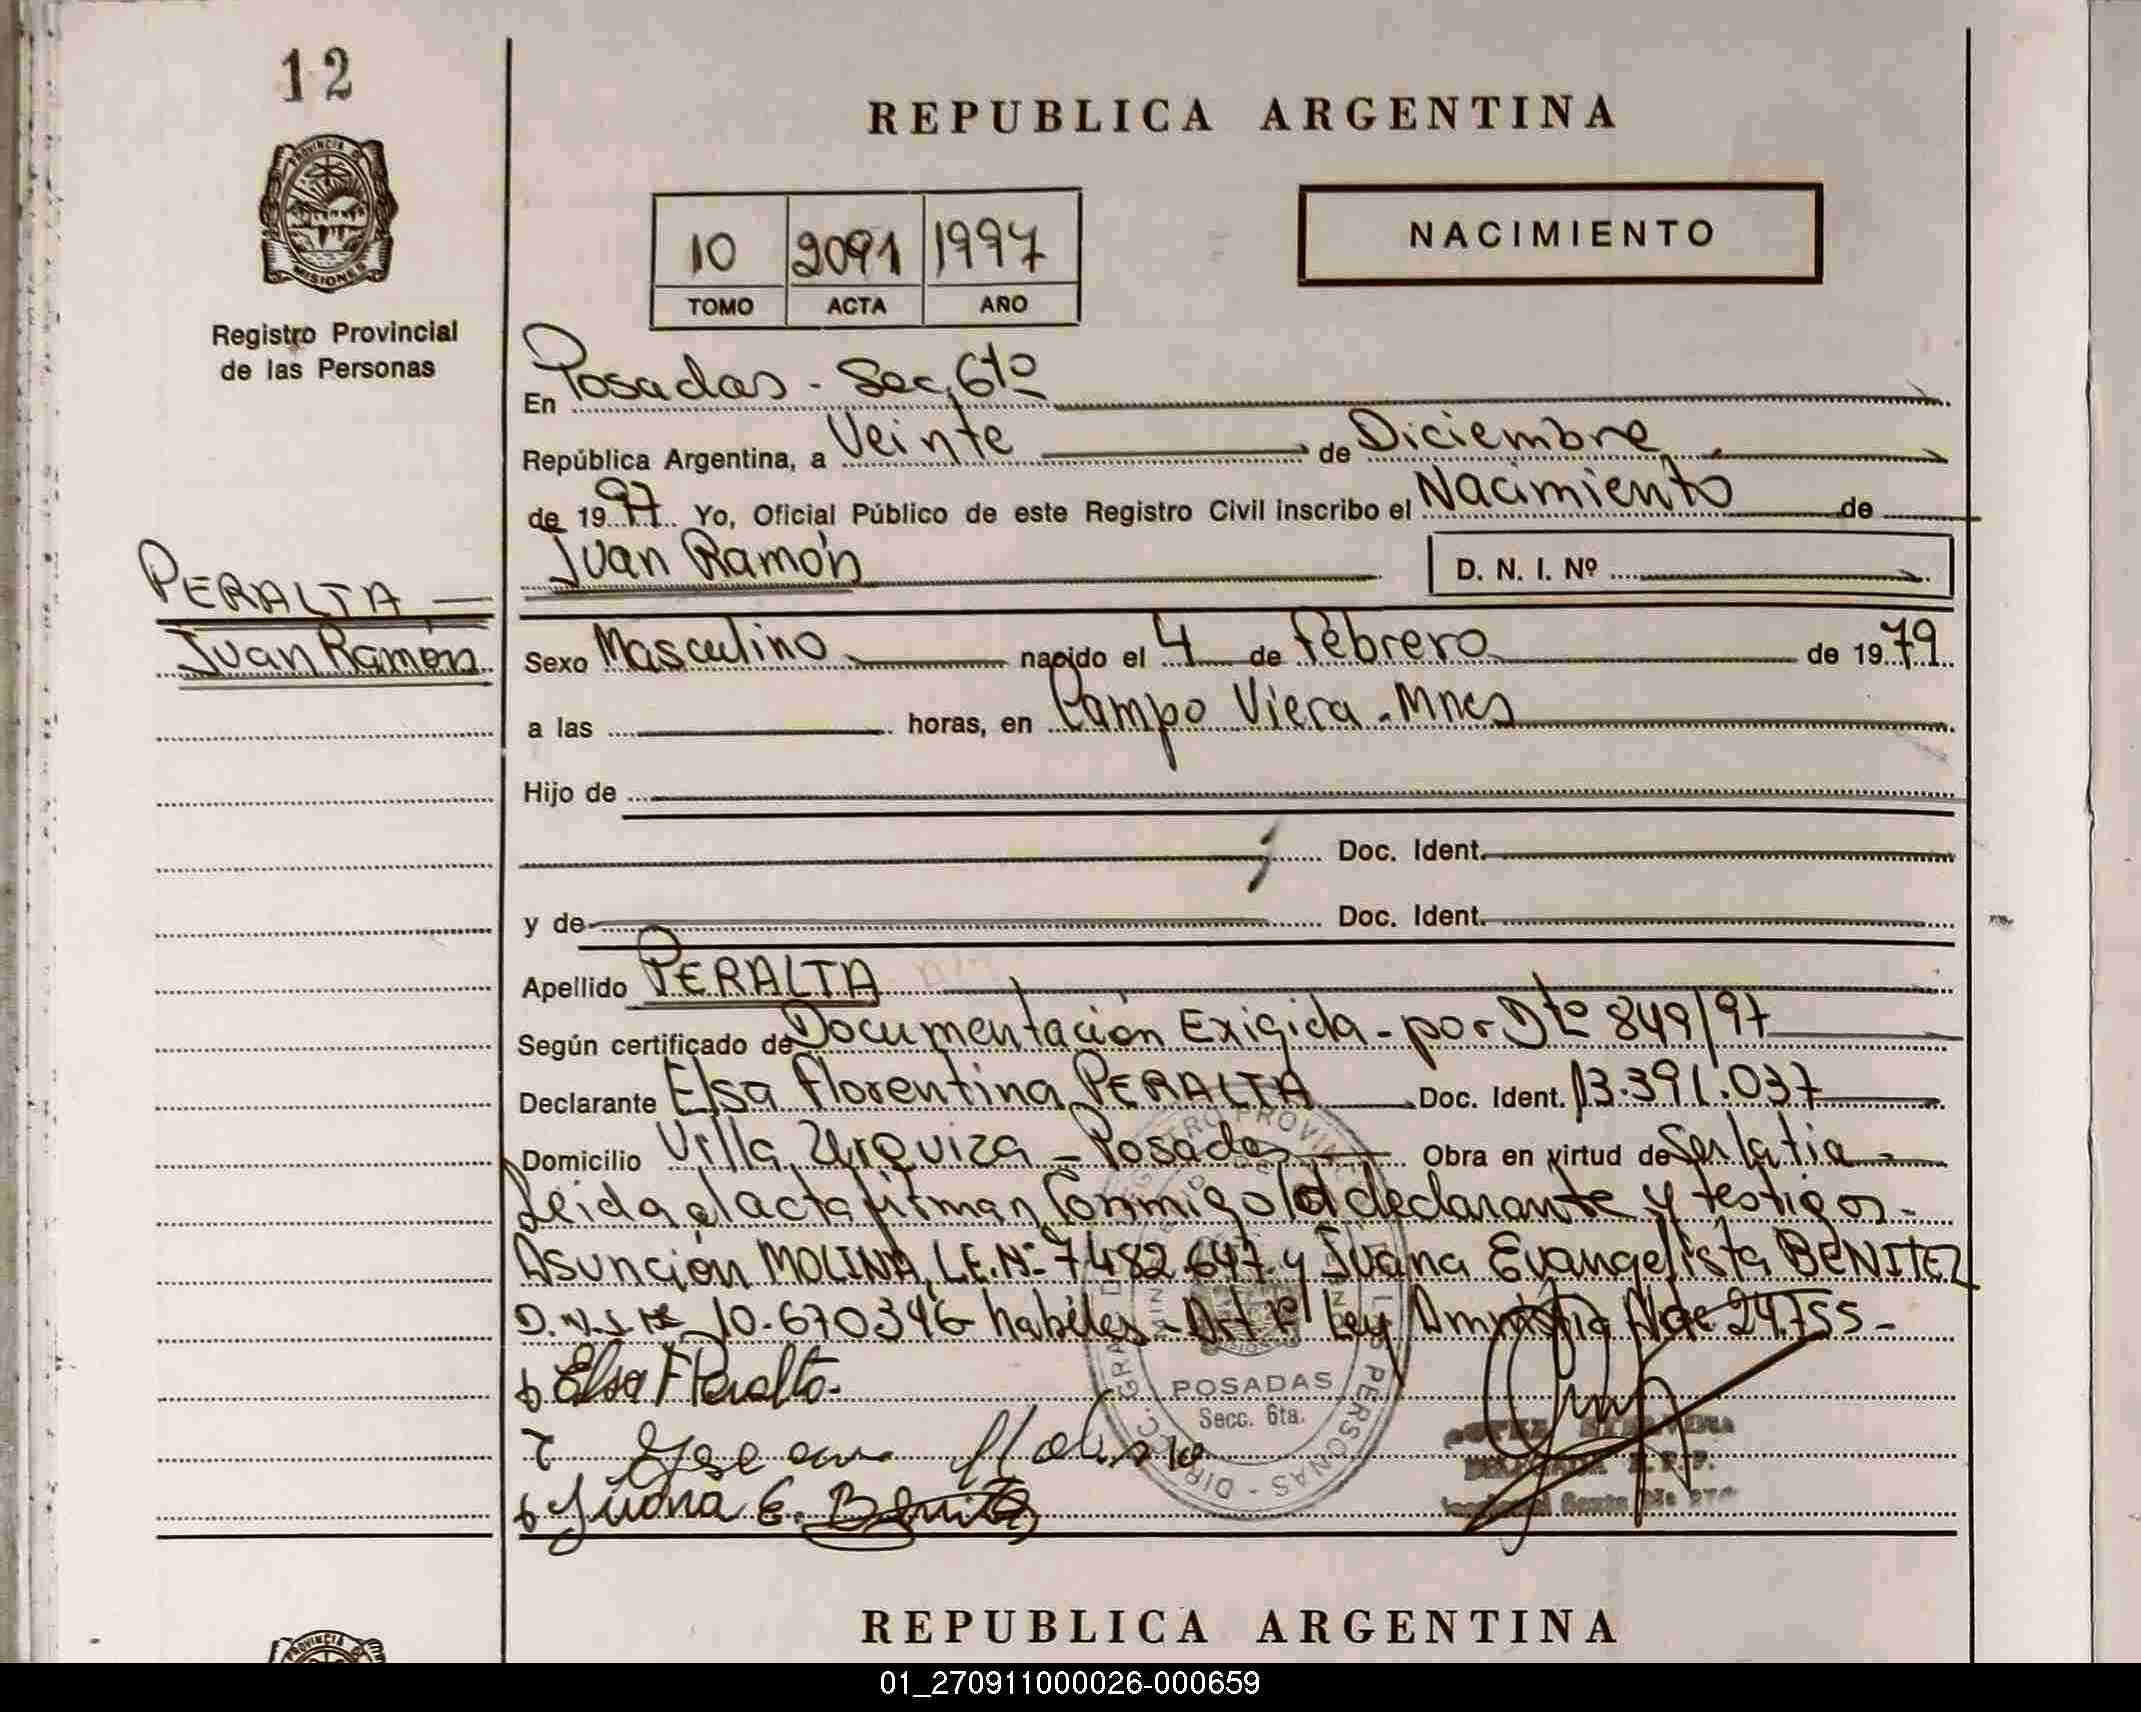 12
REPUBLICA ARGENTINA
PROVINCIA DE
MISIONES
Registro Provincial
de las Personas
10 2091 1997
TOMO ACTA AÑO
NACIMIENTO
En Posadas - Sec. 6ta
República Argentina, a Veinte de Diciembre
de 1997. Yo, Oficial Público de este Registro Civil inscribo el Nacimiento de
Juan Ramón D. N. I. Nº
PERALTA
Juan Ramón
Sexo Masculino nacido el 4 de febrero de 1979
a las horas, en Campo Viera - Mnes
Hijo de
Doc. Ident.
y de Doc. Ident.
Apellido PERALTA
Según certificado de Documentación Exigida - por Dto 849/97
Declarante Elsa Florentina PERALTA Doc. Ident. 13.391.037
Domicilio Villa Urquiza - Posadas Obra en virtud de Ser la tia
Leida el acta firman Conmigo la declarante y testigos -
Asunción MOLINA, L.E. Nº 7482.647 y Juana Evangelista BENITEZ
D.N.I. Nº 10.670346 habiles - Art 1º Ley Amnistia Nº 24.755 -
Elsa F Peralta
Juana E. Benitez
POSADAS
Secc. 6ta.
REPUBLICA ARGENTINA
PROVINCIA
01_270911000026-000659